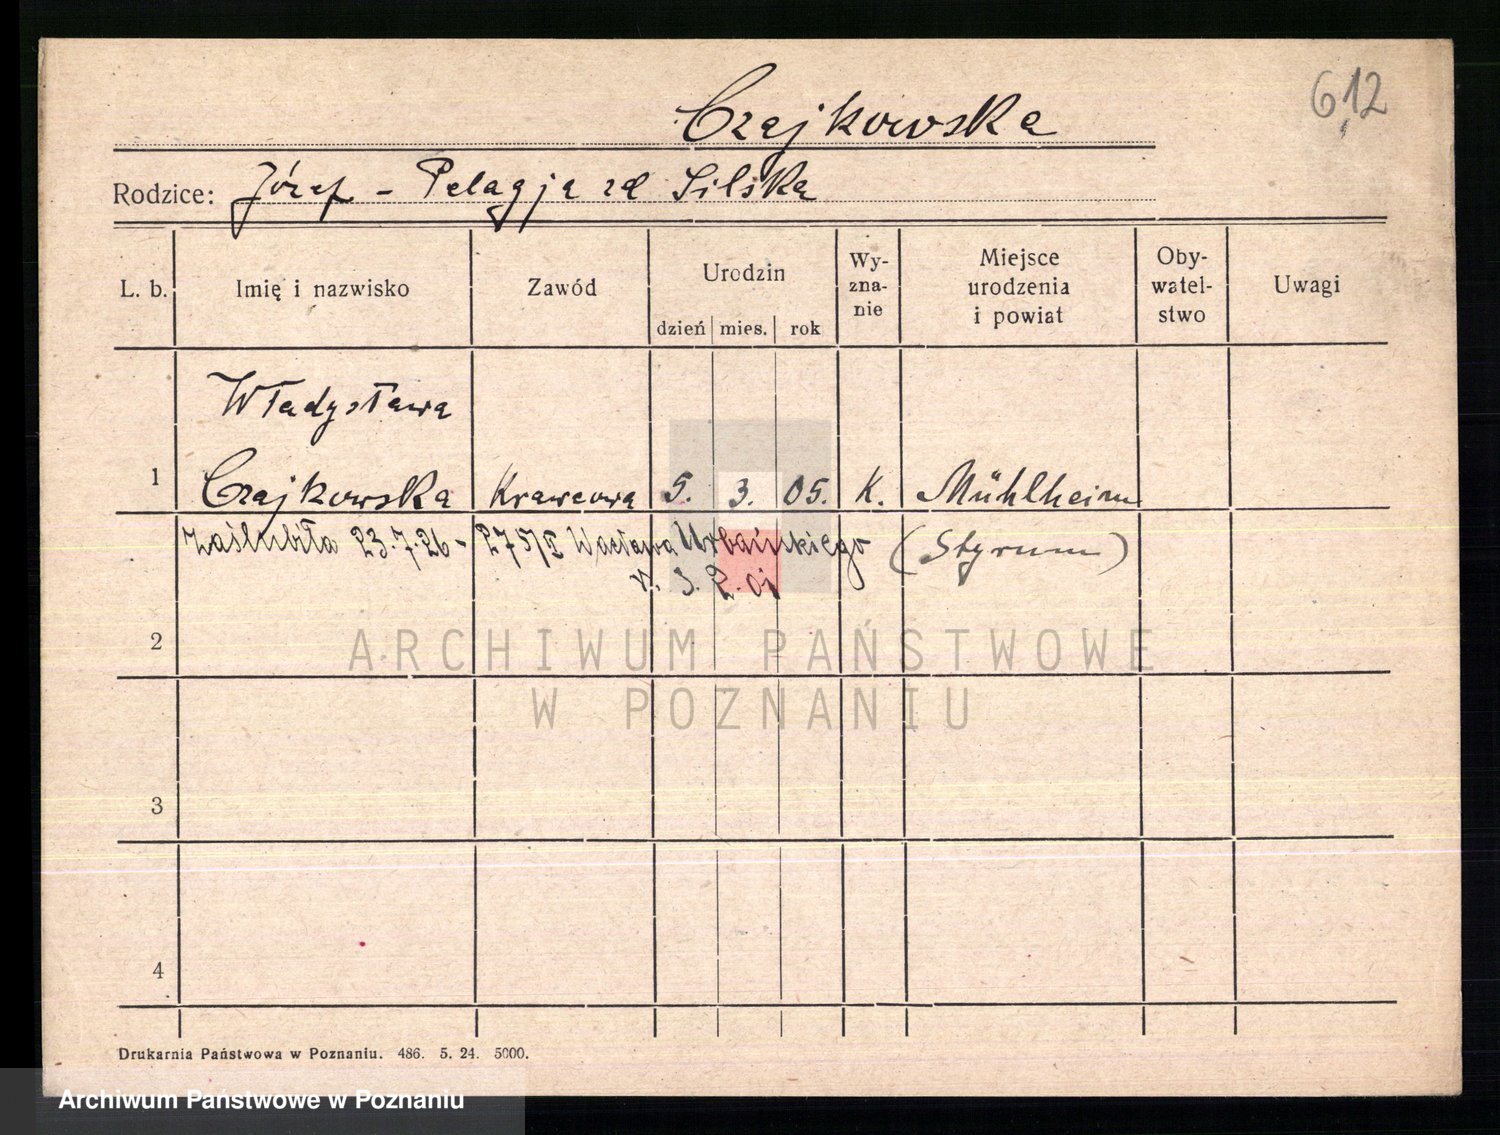 6,12
Czajkowska
Rodzice: Józef - Pelagja zd Silska
L. b. Imię i nazwisko Zawód Urodzin dzień mies. rok Wy-zna-nie Miejsce urodzenia i powiat Oby-watel-stwo Uwagi
Władysława
1 Czajkowska Krawcowa 5. 3. 05. K. Mühlheim
zaślubiła 23.7.26 - 275/II Wacława Urbańskiego (Styrum)
n. 3. 2. 01
2
ARCHIWUM PAŃSTWOWE
W POZNANIU
3
4
Drukarnia Państwowa w Poznaniu. 486. 5. 24. 5000.
Archiwum Państwowe w Poznaniu